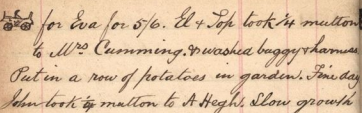 for Eva for 5/6. El & Top took ¼ mutton
to Mrs Cumming. & washed buggy & harness
Put in a row of potatoes in garden. Fine day
John took ¼ mutton to A Hegh. Slow growth